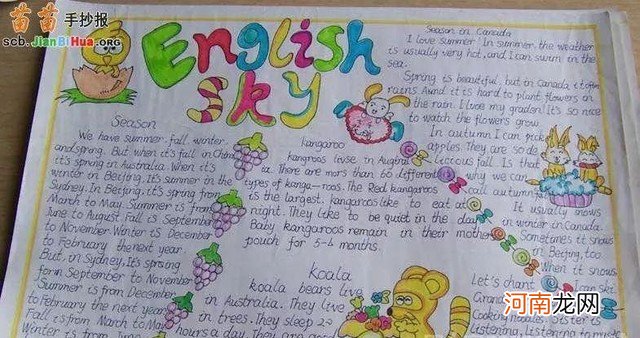 苗苗手抄报
scb.JianBiHua.ORG
English
sky
Season
We have summer, fall, winter,
and spring. But when it's fall in China
it's spring in Australia. When it's
winter in Beijing, it's summer in the
Sydney. In Beijing, it's spring from
March to May. Summer is from
June to August Fall is September
to November Winter is December
to February the next year.
But, in Sydney, It's spring
form September to November
Summer is from December
to February the next year
Fall is from March to May
Winter is from June
kangaroo
kangroos livse in
ia. There are mors than 60 different
types of kanga-roos. The Red kangaroos
is the largest. kangaroos like to eat at
night. They like to be quiet in the day
Baby kangaroos remain in their mother
pouch for 5-6 months.
Koala
koala bears live
in Australia. They live
in trees. They sleep
hours a day. They are
Season in Canada
I love summer In summer, the weather
is usually very hot, and I can swim in the
sea.
Spring is beautiful, but in Canada it often
rains Aund it is hard to plant flowers in
the rain. I lvoe my graden! It's so nice
to watch the flowers grow.
In autumn I can pick
apples. They are so de
licious fall. Is that
why we can
call autumn
It usually snows
in winter in Canada.
Sometimes it snows
in Beijing, too.
When it snows.
Let's chant
can ski
Cooking noodle Sister is
listening, listening to music
河南龙网